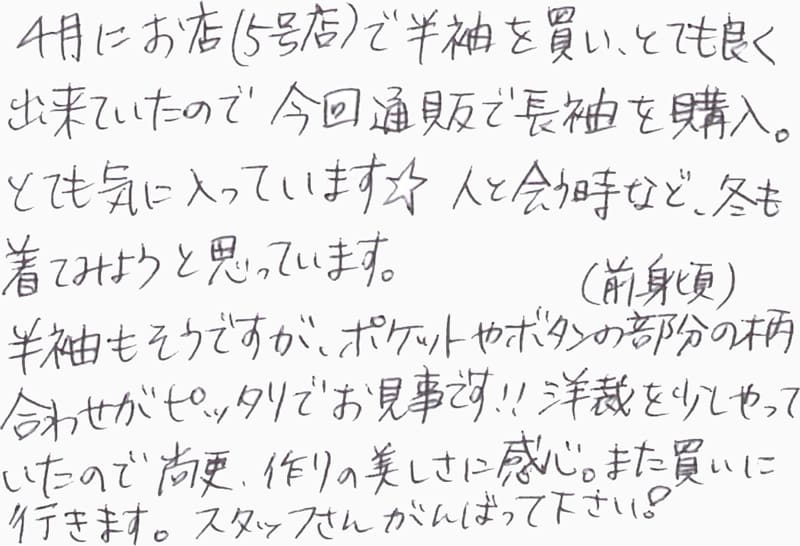 4月にお店(5号店)で半袖を買い、とても良く
出来ていたので今回通販で長袖を購入。
とても気に入っています☆ 人と会う時など、冬も
着てみようと思っています。
(前身頃)
半袖もそうですが、ポケットやボタンの部分の柄
合わせがピッタリでお見事です!! 洋裁を少しやって
いたので尚更、作りの美しさに感心。また買いに
行きます。スタッフさんがんばって下さい!